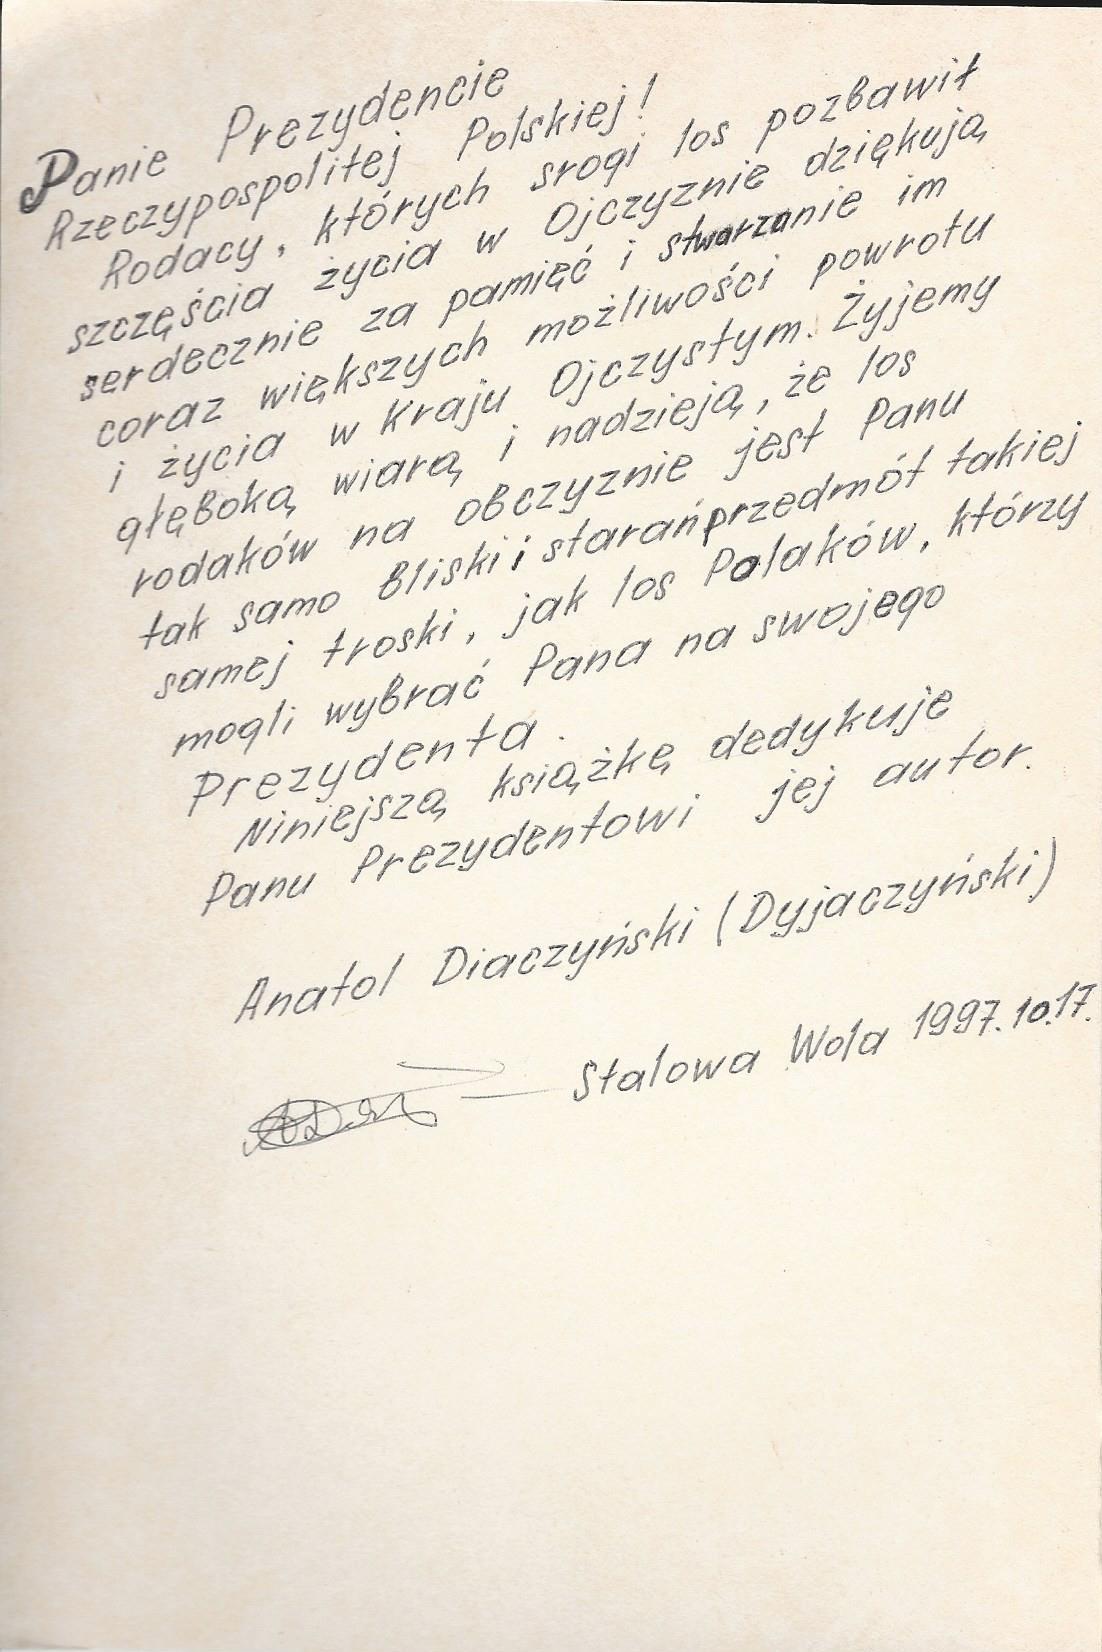 Panie Prezydencie
Rzeczypospolitej Polskiej!
Rodacy, których srogi los pozbawił
szczęścia życia w Ojczyznie dziękują
serdecznie za pamięć i stwarzanie im
coraz większych możliwości powrotu
i życia w Kraju Ojczystym. Żyjemy
głęboką wiarą i nadzieją, że los
rodaków na obczyznie jest Panu
tak samo bliski i starań przedmót takiej
samej troski, jak los Polaków, którzy
mogli wybrać Pana na swojego
Prezydenta.
Niniejszą książkę dedykuje
Panu Prezydentowi jej autor.
Anatol Diaczyński (Dyjaczyński)
Stalowa Wola 1997.10.17.